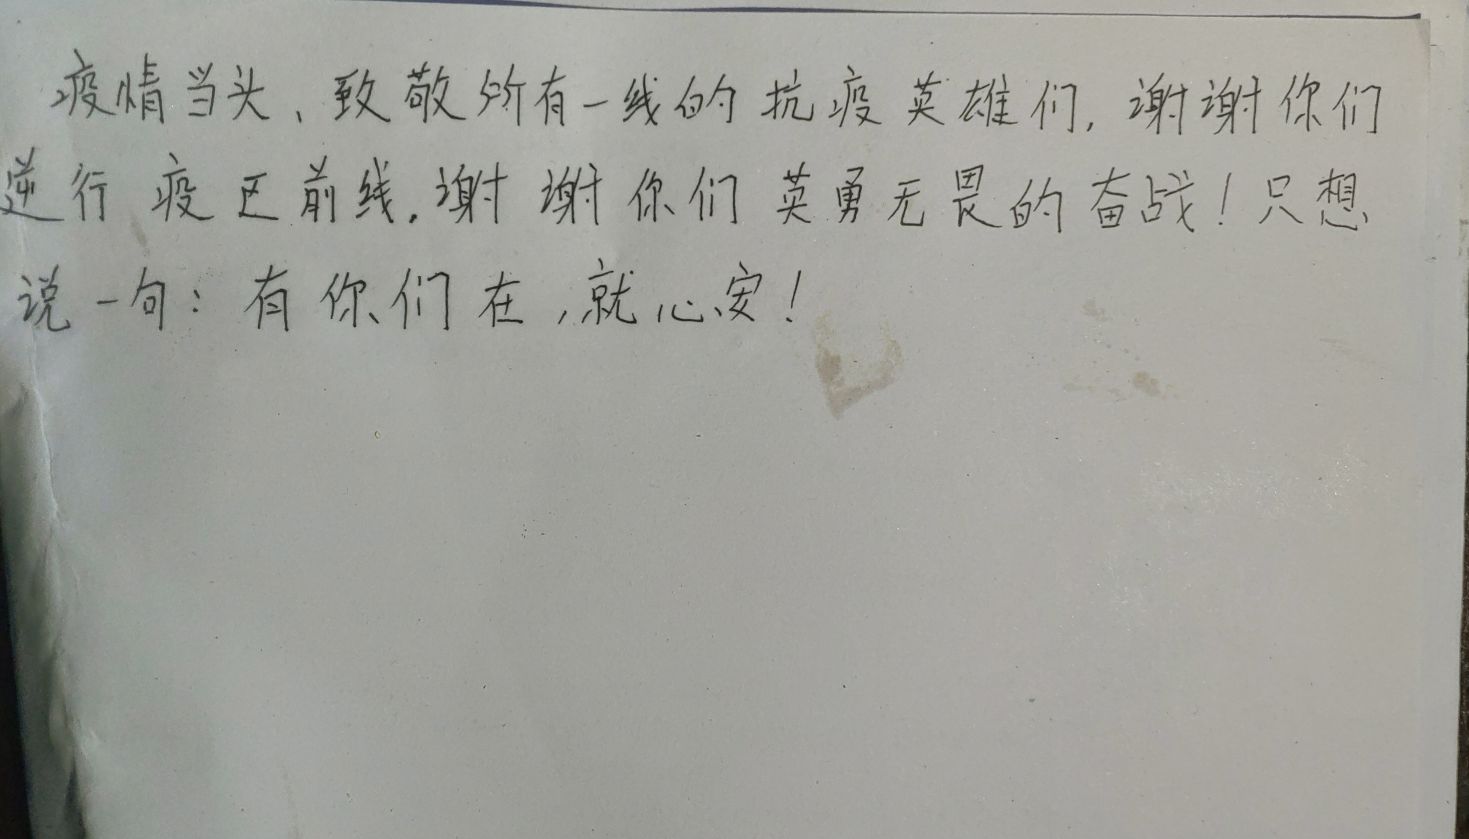 疫情当头、致敬所有一线的抗疫英雄们,谢谢你们
逆行疫区前线,谢谢你们英勇无畏的奋战!只想
说一句:有你们在,就心安!